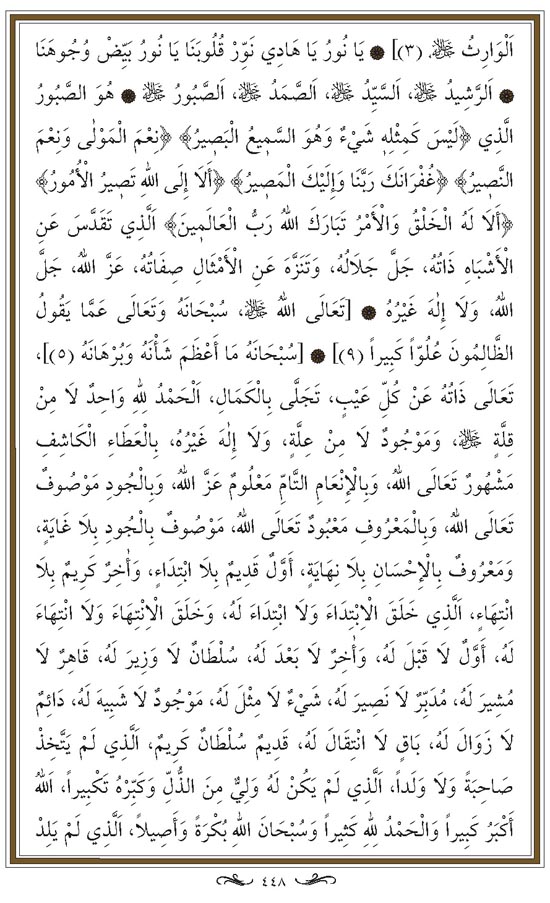 اَلْوَارِثُ ﷻ. (٣)] ● يَا نُورُ يَا هَادِي نَوِّرْ قُلُوبَنَا يَا نُورُ بَيِّضْ وُجُوهَنَا
● اَلرَّشِيدُ ﷻ، اَلسَّيِّدُ ﷻ، اَلصَّمَدُ ﷻ، اَلصَّبُورُ ﷻ ● هُوَ الصَّبُورُ
الَّذِي ﴿لَيْسَ كَمِثْلِهِ شَيْءٌ وَهُوَ السَّمِيعُ الْبَصِيرُ﴾ ﴿نِعْمَ الْمَوْلٰى وَنِعْمَ
النَّصِيرُ﴾ ﴿غُفْرَانَكَ رَبَّنَا وَإِلَيْكَ الْمَصِيرُ﴾ ﴿أَلَا إِلَى اللهِ تَصِيرُ الْأُمُورُ﴾
﴿أَلَا لَهُ الْخَلْقُ وَالْأَمْرُ تَبَارَكَ اللهُ رَبُّ الْعَالَمِينَ﴾ اَلَّذِي تَقَدَّسَ عَنِ
الْأَشْبَاهِ ذَاتُهُ، جَلَّ جَلَالُهُ، وَتَنَزَّهَ عَنِ الْأَمْثَالِ صِفَاتُهُ، عَزَّ اللهُ، جَلَّ
اللهُ، وَلَا إِلٰهَ غَيْرُهُ ● [تَعَالَى اللهُ ﷻ، سُبْحَانَهُ وَتَعَالَى عَمَّا يَقُولُ
الظَّالِمُونَ عُلُوّاً كَبِيراً (٩)] ● [سُبْحَانَهُ مَا أَعْظَمَ شَأْنَهُ وَبُرْهَانَهُ (٥)]،
تَعَالَى ذَاتُهُ عَنْ كُلِّ عَيْبٍ، تَجَلَّى بِالْكَمَالِ، اَلْحَمْدُ لِلهِ وَاحِدٌ لَا مِنْ
قِلَّةٍ ﷻ، وَمَوْجُودٌ لَا مِنْ عِلَّةٍ، وَلَا إِلٰهَ غَيْرُهُ، بِالْعَطَاءِ الْكَاشِفِ
مَشْهُورٌ تَعَالَى اللهُ، وَبِالْإِنْعَامِ التَّامِّ مَعْلُومٌ عَزَّ اللهُ، وَبِالْجُودِ مَوْصُوفٌ
تَعَالَى اللهُ، وَبِالْمَعْرُوفِ مَعْبُودٌ تَعَالَى اللهُ، مَوْصُوفٌ بِالْجُودِ بِلَا غَايَةٍ،
وَمَعْرُوفٌ بِالْإِحْسَانِ بِلَا نِهَايَةٍ، أَوَّلٌ قَدِيمٌ بِلَا ابْتِدَاءٍ، وَآخِرٌ كَرِيمٌ بِلَا
انْتِهَاءٍ، اَلَّذِي خَلَقَ الْابْتِدَاءَ وَلَا ابْتِدَاءَ لَهُ، وَخَلَقَ الْانْتِهَاءَ وَلَا انْتِهَاءَ
لَهُ، أَوَّلٌ لَا قَبْلَ لَهُ، وَآخِرٌ لَا بَعْدَ لَهُ، سُلْطَانٌ لَا وَزِيرَ لَهُ، قَاهِرٌ لَا
مُشِيرَ لَهُ، مُدَبِّرٌ لَا نَصِيرَ لَهُ، شَيْءٌ لَا مِثْلَ لَهُ، مَوْجُودٌ لَا شَبِيهَ لَهُ، دَائِمٌ
لَا زَوَالَ لَهُ، بَاقٍ لَا انْتِقَالَ لَهُ، قَدِيمٌ سُلْطَانٌ كَرِيمٌ، اَلَّذِي لَمْ يَتَّخِذْ
صَاحِبَةً وَلَا وَلَداً، اَلَّذِي لَمْ يَكُنْ لَهُ وَلِيٌّ مِنَ الذُّلِّ وَكَبِّرْهُ تَكْبِيراً، اَللهُ
أَكْبَرُ كَبِيراً وَالْحَمْدُ لِلهِ كَثِيراً وَسُبْحَانَ اللهِ بُكْرَةً وَأَصِيلاً، اَلَّذِي لَمْ يَلِدْ
٤٤٨